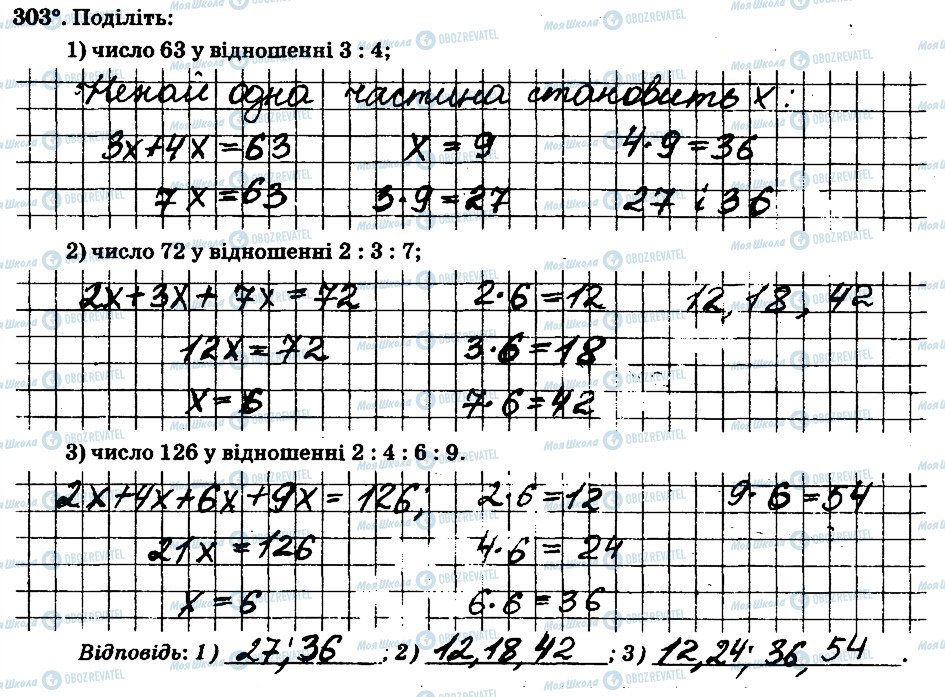 303°. Поділіть:
1) число 63 у відношенні 3 : 4;
Нехай одна частина становить x:
3x+4x=63 x=9 4·9=36
7x=63 3·9=27 27 і 36
2) число 72 у відношенні 2 : 3 : 7;
2x+3x+7x=72 2·6=12 12, 18, 42
12x=72 3·6=18
x=6 7·6=42
3) число 126 у відношенні 2 : 4 : 6 : 9.
2x+4x+6x+9x=126; 2·6=12 9·6=54
21x=126 4·6=24
x=6 6·6=36
Відповідь: 1) 27, 36; 2) 12, 18, 42; 3) 12, 24, 36, 54.
МояШкола OBOZREVATEL